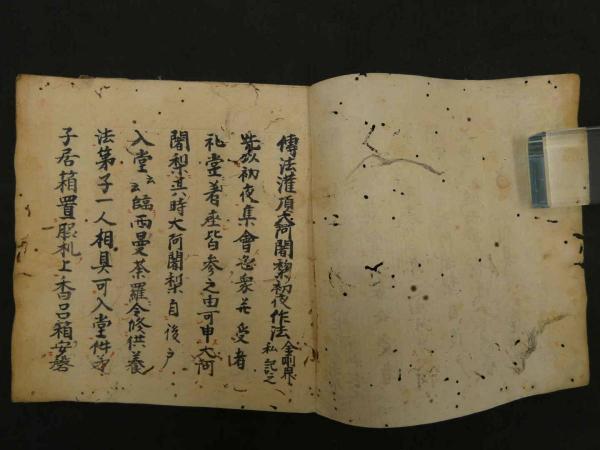 傳法灌頂大阿闍梨初夜作法 金剛界 私記之
先以初夜集會 衆并受者
礼堂著座皆参之由可申大阿
闍梨其時大阿闍梨自後戸
入堂云云臨両曼荼羅令修供養
法第子一人相具可入堂件弟
子居箱置脇机上香呂箱安磬